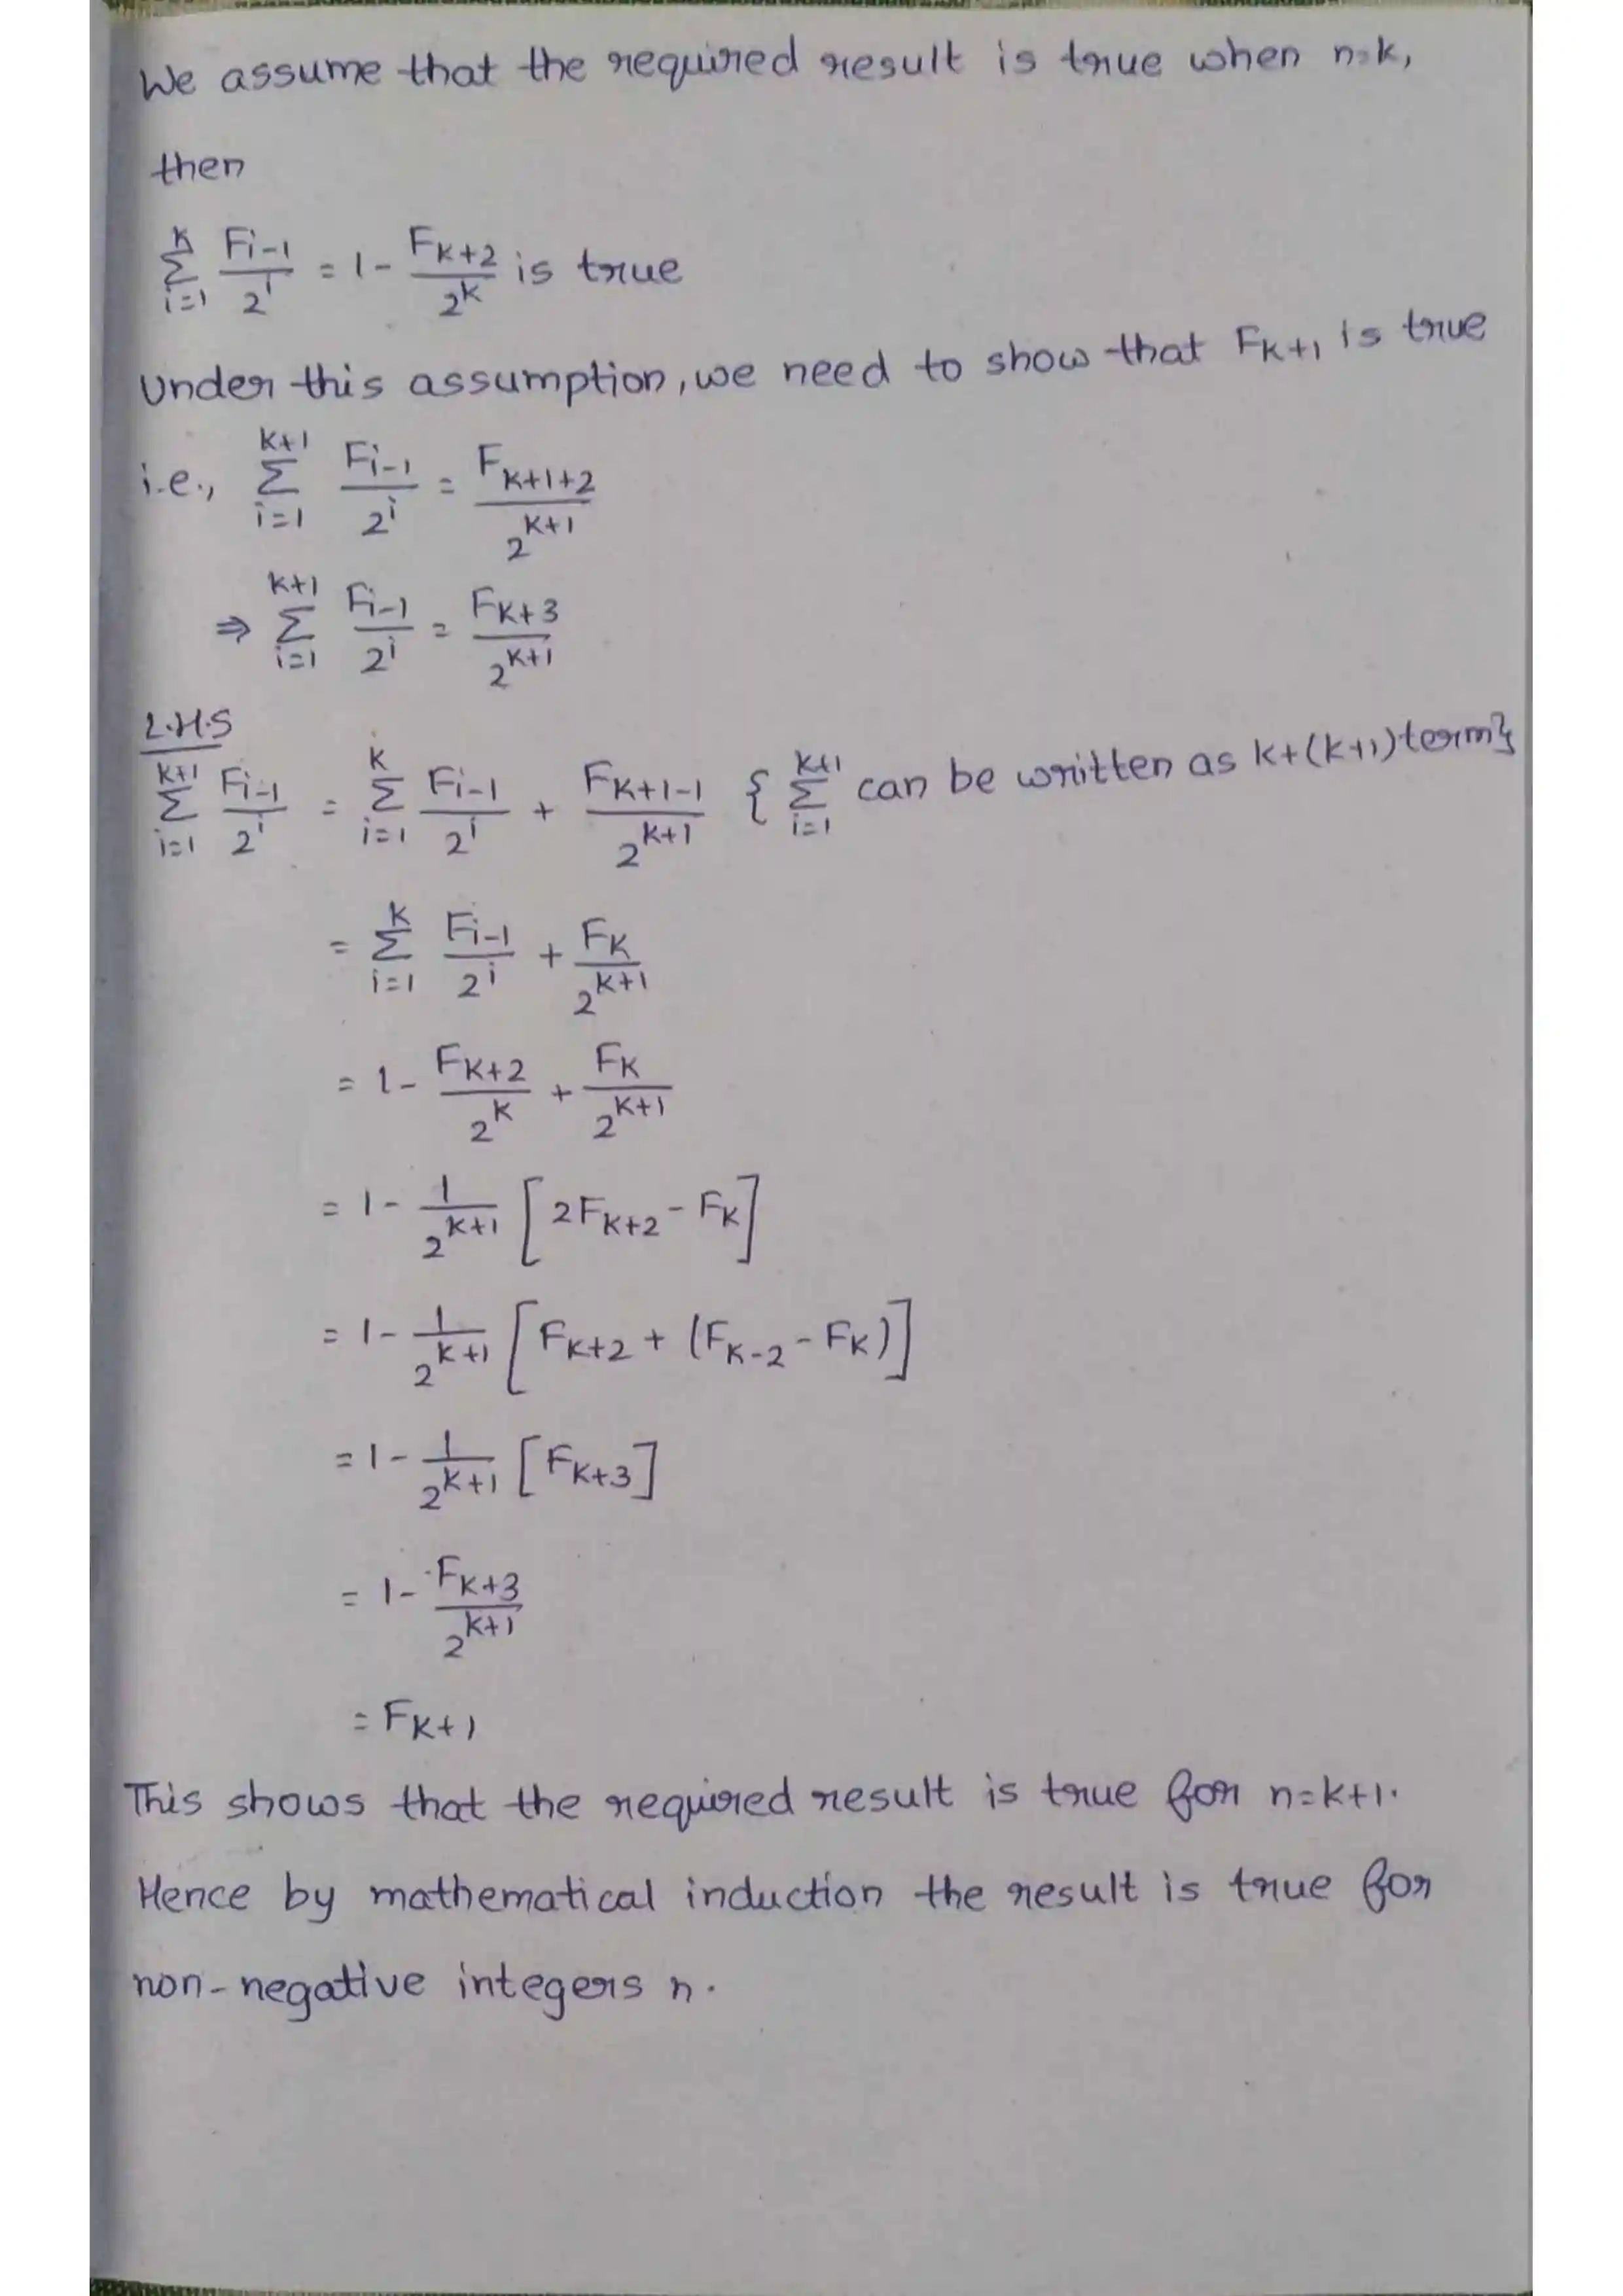 We assume that the required result is true when n=k,
then
∑_{i=1}^{k} F_{i-1}/2^i = 1 - F_{k+2}/2^k is true
Under this assumption, we need to show that F_{k+1} is true
i.e., ∑_{i=1}^{k+1} F_{i-1}/2^i = F_{k+1+2}/2^{k+1}
⇒ ∑_{i=1}^{k+1} F_{i-1}/2^i = F_{k+3}/2^{k+1}
L.H.S
∑_{i=1}^{k+1} F_{i-1}/2^i = ∑_{i=1}^{k} F_{i-1}/2^i + F_{k+1-1}/2^{k+1} {∑_{i=1}^{k+1} can be written as k+(k+1)term}
= ∑_{i=1}^{k} F_{i-1}/2^i + F_k/2^{k+1}
= 1 - F_{k+2}/2^k + F_k/2^{k+1}
= 1 - 1/2^{k+1} [2F_{k+2} - F_k]
= 1 - 1/2^{k+1} [F_{k+2} + (F_{k-2} - F_k)]
= 1 - 1/2^{k+1} [F_{k+3}]
= 1 - F_{k+3}/2^{k+1}
= F_{k+1}
This shows that the required result is true for n=k+1.
Hence by mathematical induction the result is true for
non-negative integers n.